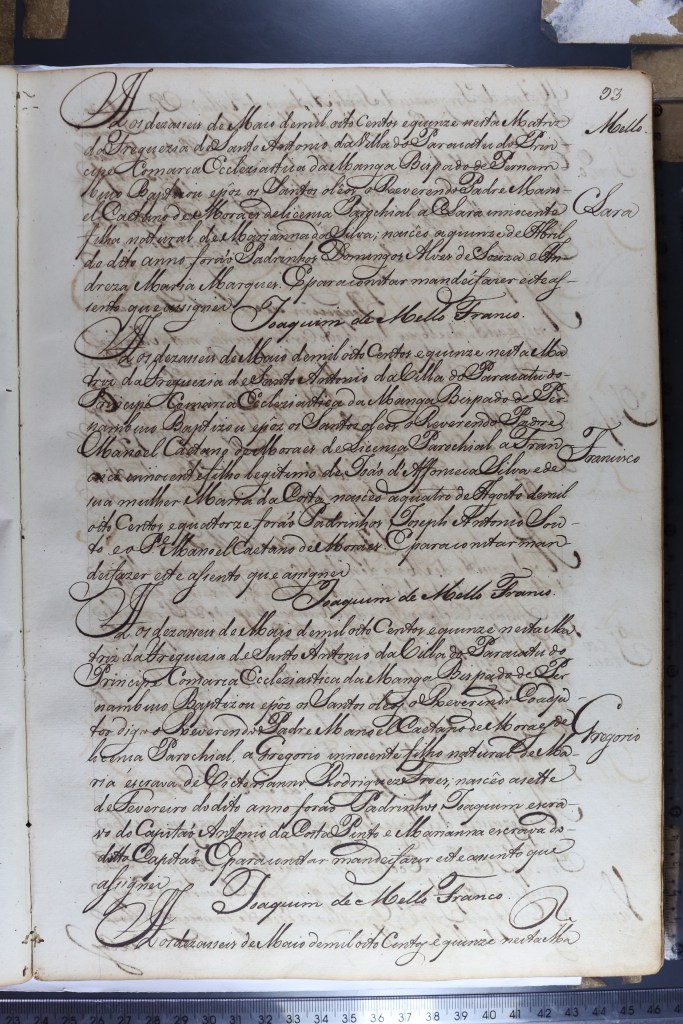 93
Mello.
Aos dezasseis de Maio de mil oito Centos e quinze nesta Matriz
da Freguezia de Santo Antonio da Villa do Paracatu do Prin-
cipe Comarca Ecclesiastica da Manga Bispado de Pernam-
buco Baptizou e poz os Santos oleos o Reverendo Padre Mano-
el Caetano de Moraes de licenia Parochial a Clara innocente
Clara
filha natural de Marianna da Silva; nasceo a quinze de Abril
do dito anno forão Padrinhos Domingos Alves de Souza e An-
dreza Maria Marques. E para constar mandei fazer este as-
sento que assignei
Joaquim de Mello Franco.
Aos dezasseis de Maio de mil oito Centos e quinze nesta Ma-
triz da Freguezia de Santo Antonio da Villa do Paracatu do
Principe Comarca Ecclesiastica da Manga Bispado de Per-
nambuco Baptizou e poz os Santos oleos o Reverendo Padre
Manoel Caetano de Moraes de Licenia Parochial a Fran-
Francisco
cisco innocente filho legitimo de João d'Affonseca Silva e de
sua mulher Maria da Costa, nasceo a quatro de Agosto de mil
oito Centos e quatorze forão Padrinhos Joseph Antonio Sou-
to e o Pe. Manoel Caetano de Moraes E para constar man-
dei fazer este assento que assignei
Joaquim de Mello Franco.
Aos dezasseis de Maio de mil oito Centos e quinze nesta Ma-
triz da Freguezia de Santo Antonio da Villa do Paracatu do
Principe Comarca Ecclesiastica da Manga Bispado de Per-
nambuco Baptizou e poz os Santos oleos o Reverendo Coadju-
tor digo o Reverendo Padre Manoel Caetano de Moraes de
Gregorio
licenia Parochial, a Gregorio innocente filho natural de Ma-
ria escrava de Victorianno Rodrigues Froes, nasceo a sette
de Fevereiro do dito anno forão Padrinhos Joaquim escra-
vo do Capitão Antonio da Costa Pinto e Marianna escrava do
ditto Capitão E para constar mandei fazer este assento que
assignei
Joaquim de Mello Franco.
Aos dezasseis de Maio de mil oito Centos e quinze nesta Ma